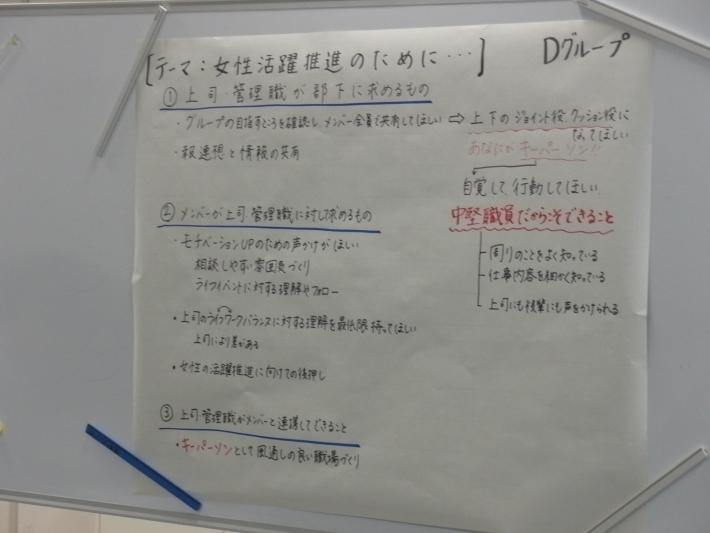 [テーマ：女性活躍推進のために…]
Dグループ
① 上司・管理職が部下に求めるもの
・グループの目指すところを確認し、メンバー全員で共有してほしい ⇨ 上下のジョイント役、クッション役に
なってほしい
・報連想と情報の共有
あなたがキーパーソン!!
自覚して、行動してほしい
② メンバーが上司・管理職に対して求めるもの
中堅職員だからこそできること
・モチベーションUPのための声かけがほしい
相談しやすい雰囲気づくり
ライフイベントに対する理解やフォロー
周りのことをよく知っている
仕事内容を細かく知っている
上司にも後輩にも声をかけられる
・上司のライフワークバランスに対する理解を最低限持ってほしい
上司により差がある
・女性の活躍推進に向けての後押し
③ 上司・管理職がメンバーと連携してできること
・キーパーソンとして風通しの良い職場づくり